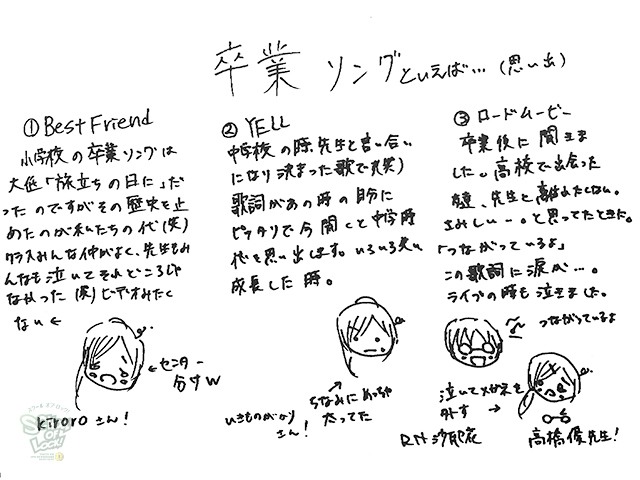 卒業ソングといえば…(思い出)
①Best Friend
小学校の卒業ソングは
大低「旅立ちの日に」だ
ったのですがその歴史を止
めたのが私たちの代(笑)
クラスみんな仲がよく、先生もみ
んなも泣いてそれどころじゃ
なかった(涙)ビデオみたく
ない←
←センター
分けw
kiroroさん!
②YELL
中学校の時、先生と言い合い
になり決まった歌で(笑)
歌詞があの時の自分に
ピッタリで今聞くと中学時
代を思い出します。いろいろ
成長した時。
ちなみにめっちゃ
太ってた
いきものがかり
さん!
③ロードムービー
卒業後に聞きま
した。高校で出会った
友達、先生と離れたくない。
さみしいー。と思ってたときだ。
「つながっているよ」
この歌詞に涙が…。
ライブの時も泣きました。
つながっているよ
泣いてメガネを
外す
RN沙耶花
高橋優先生!
SCHOOL OF LOCK!